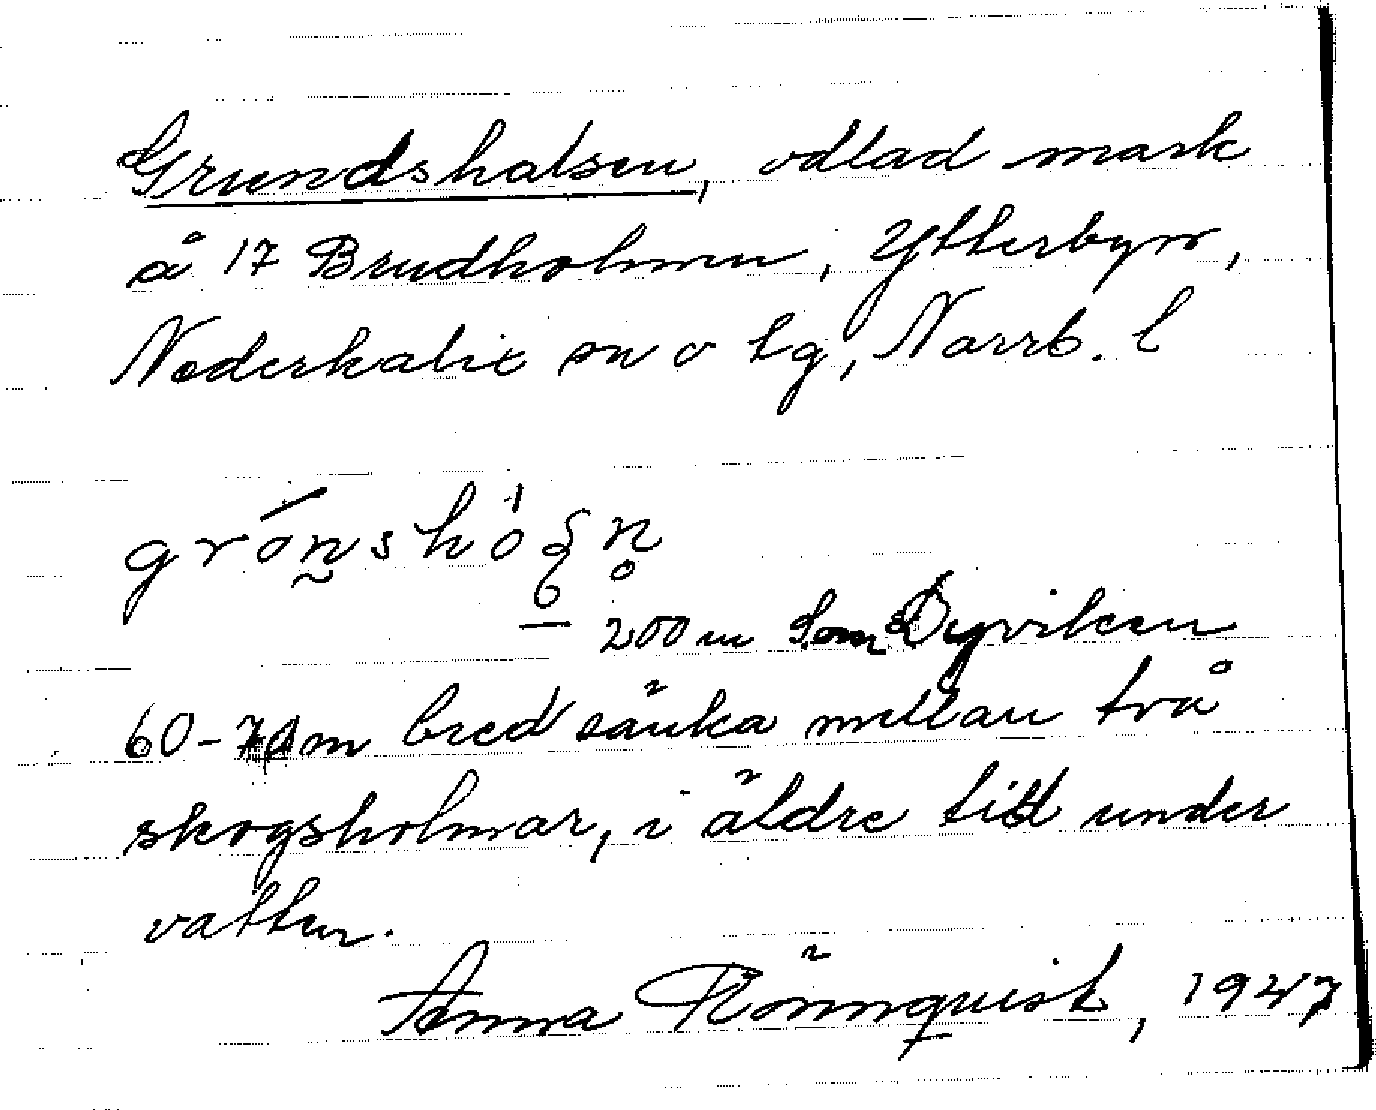 Grundshalsen, odlad mark
å 17 Brudholmen, Ytterbyn,
Nederkalix sn o tg, Norrb. l
200 m Dyviken
60-70 m bred sänka mellan två
skogsholmar, i äldre tid under
vatten.
Anna Rönnquist, 1947